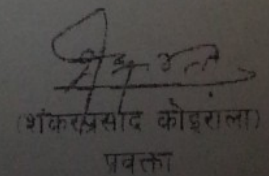 (शंकरप्रसाद कोइराला)
प्रवक्ता